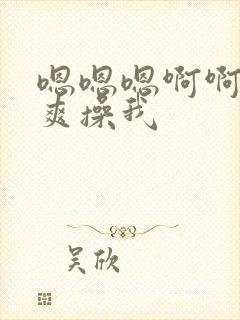 嗯嗯嗯啊啊
爽操我
吴欣